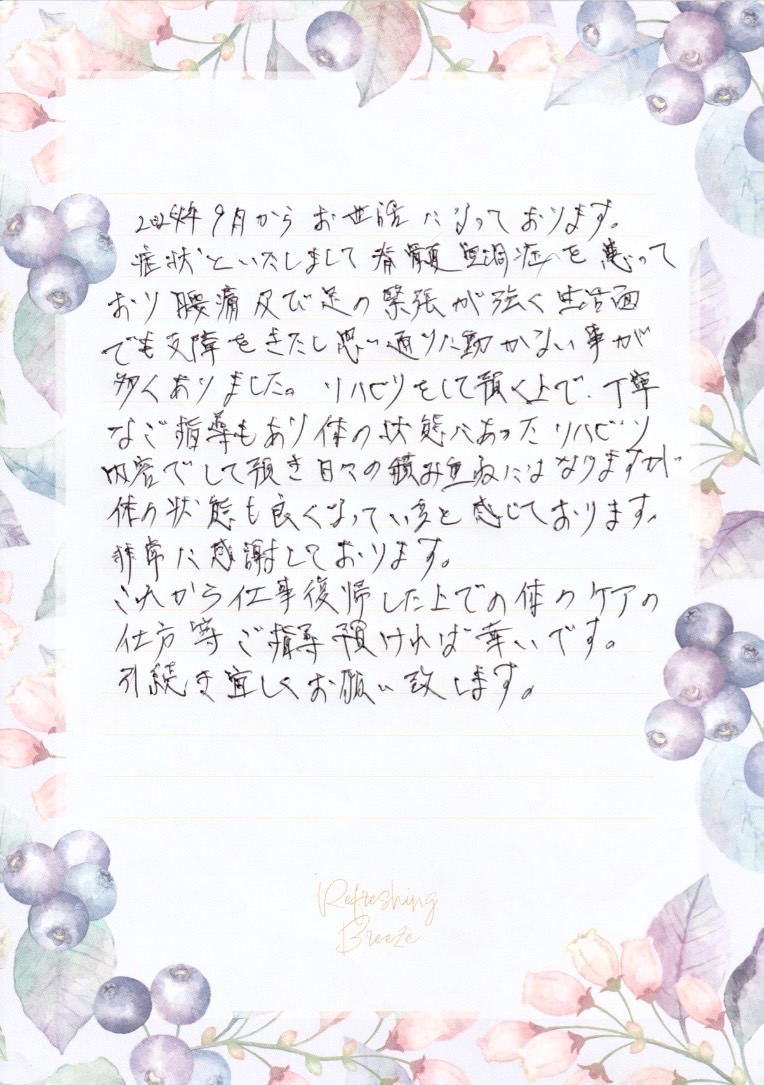 2024年9月からお世話になっております。
症状といたしまして脊髄空洞症を患って
おり腰痛及び足の緊張が強く生活面
でも支障をきたし思い通りに動かない事が
多くありました。リハビリをして頂く上で、丁寧
なご指導もあり体の状態にあったリハビリ
内容でして頂き日々の積み重ねにはなりますが
体の状態も良くなっていると感じております。
非常に感謝しております。
これから仕事復帰した上での体のケアの
仕方等ご指導頂ければ幸いです。
引続き宜しくお願い致します。
Refreshing
Breeze